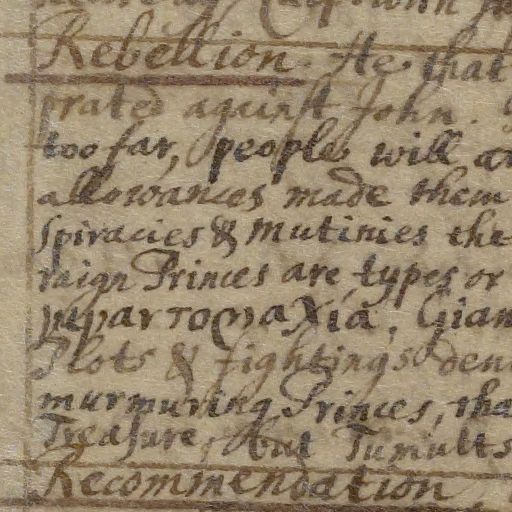 Rebellion. He that
prated against John.
too far, people will
allowances made them
spiracies & mutinies the
raign Princes are types or
γιγαντομαχία, Gian
Plots & fightings den
murmuring Princes, tha
Treasure, but Tumults
Recommendation,